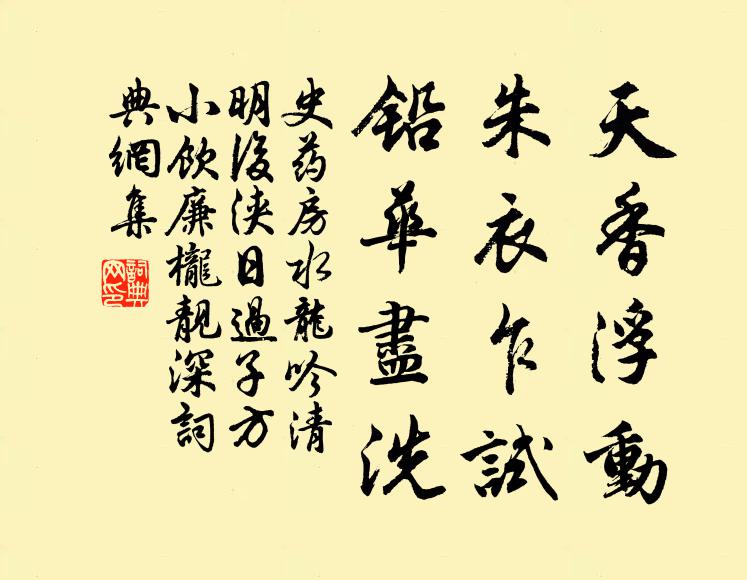 天香浮動
朱衣乍試
鉛華盡洗
史药房水龍吟清
明後浹日過子方
小飲廉櫳靚深詞
典網集
詞典
网印